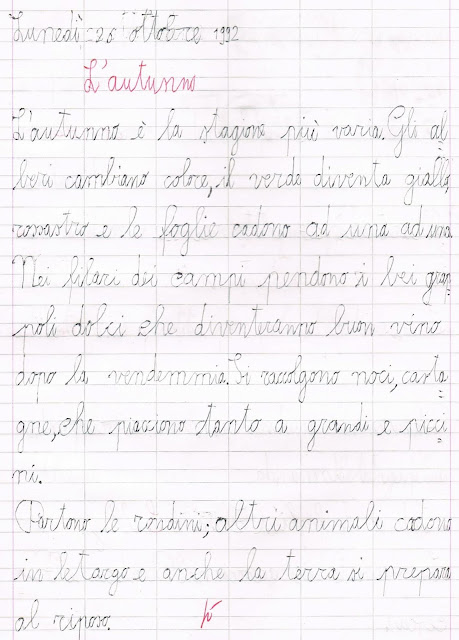 Lunedì 26 ottobre 1992
L'autunno
L'autunno è la stagione più varia. Gli al=
beri cambiano colore, il verde diventa giallo,
rossastro e le foglie cadono ad una ad una.
Nei filari dei campi pendono i bei grap=
poli dolci che diventeranno buon vino
dopo la vendemmia. Si raccolgono noci, casta=
gne, che piacciono tanto a grandi e picci=
ni.
Partono le rondini; altri animali cadono
in letargo e anche la terra si prepara
al riposo.